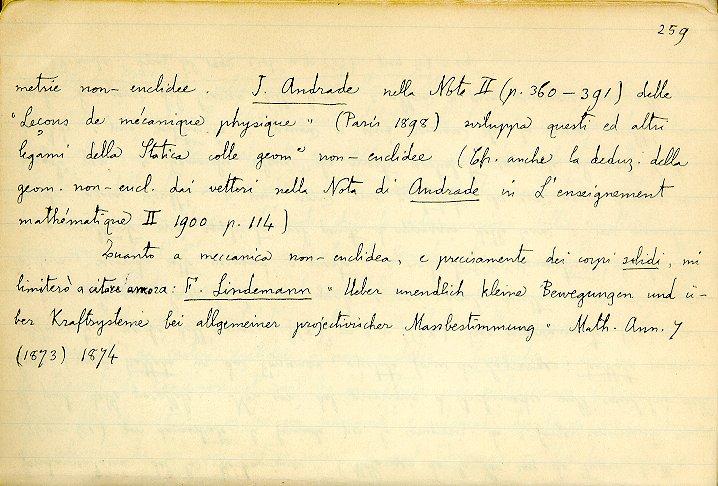 259
metrie non-euclidee. J. Andrade nella Nota II (p. 360-391) delle
"Leçons de mécanique physique" (Paris 1898) sviluppa questi ed altri
legami della Statica colle geom.e non-euclidee (Cfr. anche la deduz. della
geom. non-eucl. dai vettori nella Nota di Andrade in L'enseignement
mathématique II 1900 p. 114)
Quanto a meccanica non-euclidea, e precisamente dei corpi solidi, mi
limiterò a citare ancora: F. Lindemann "Ueber unendlich kleine Bewegungen und ü-
ber Kraftsysteme bei allgemeiner projectivischer Massbestimmung" Math. Ann. 7
(1873) 1874